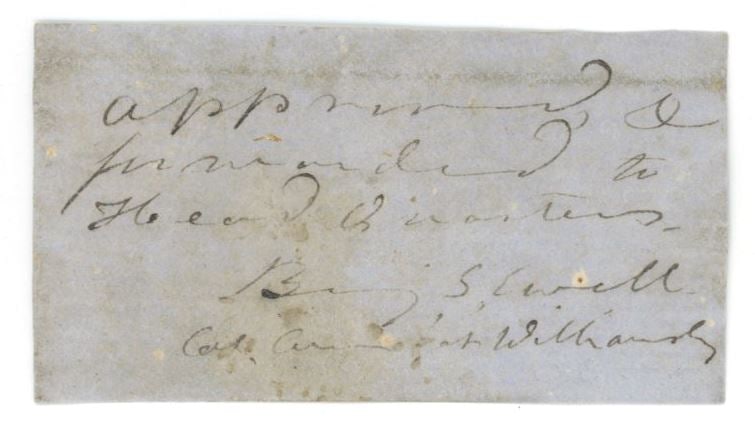 approved, &
forwarded to
Head Quarters.
Benj. S. Ewell
Col. Com at Williamsbg